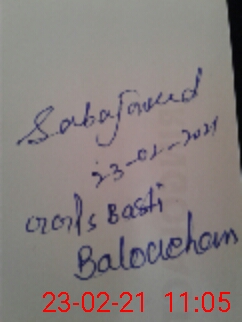 Sabajaved
23-02-2021
Basti
Balochan
23-02-21 11:05